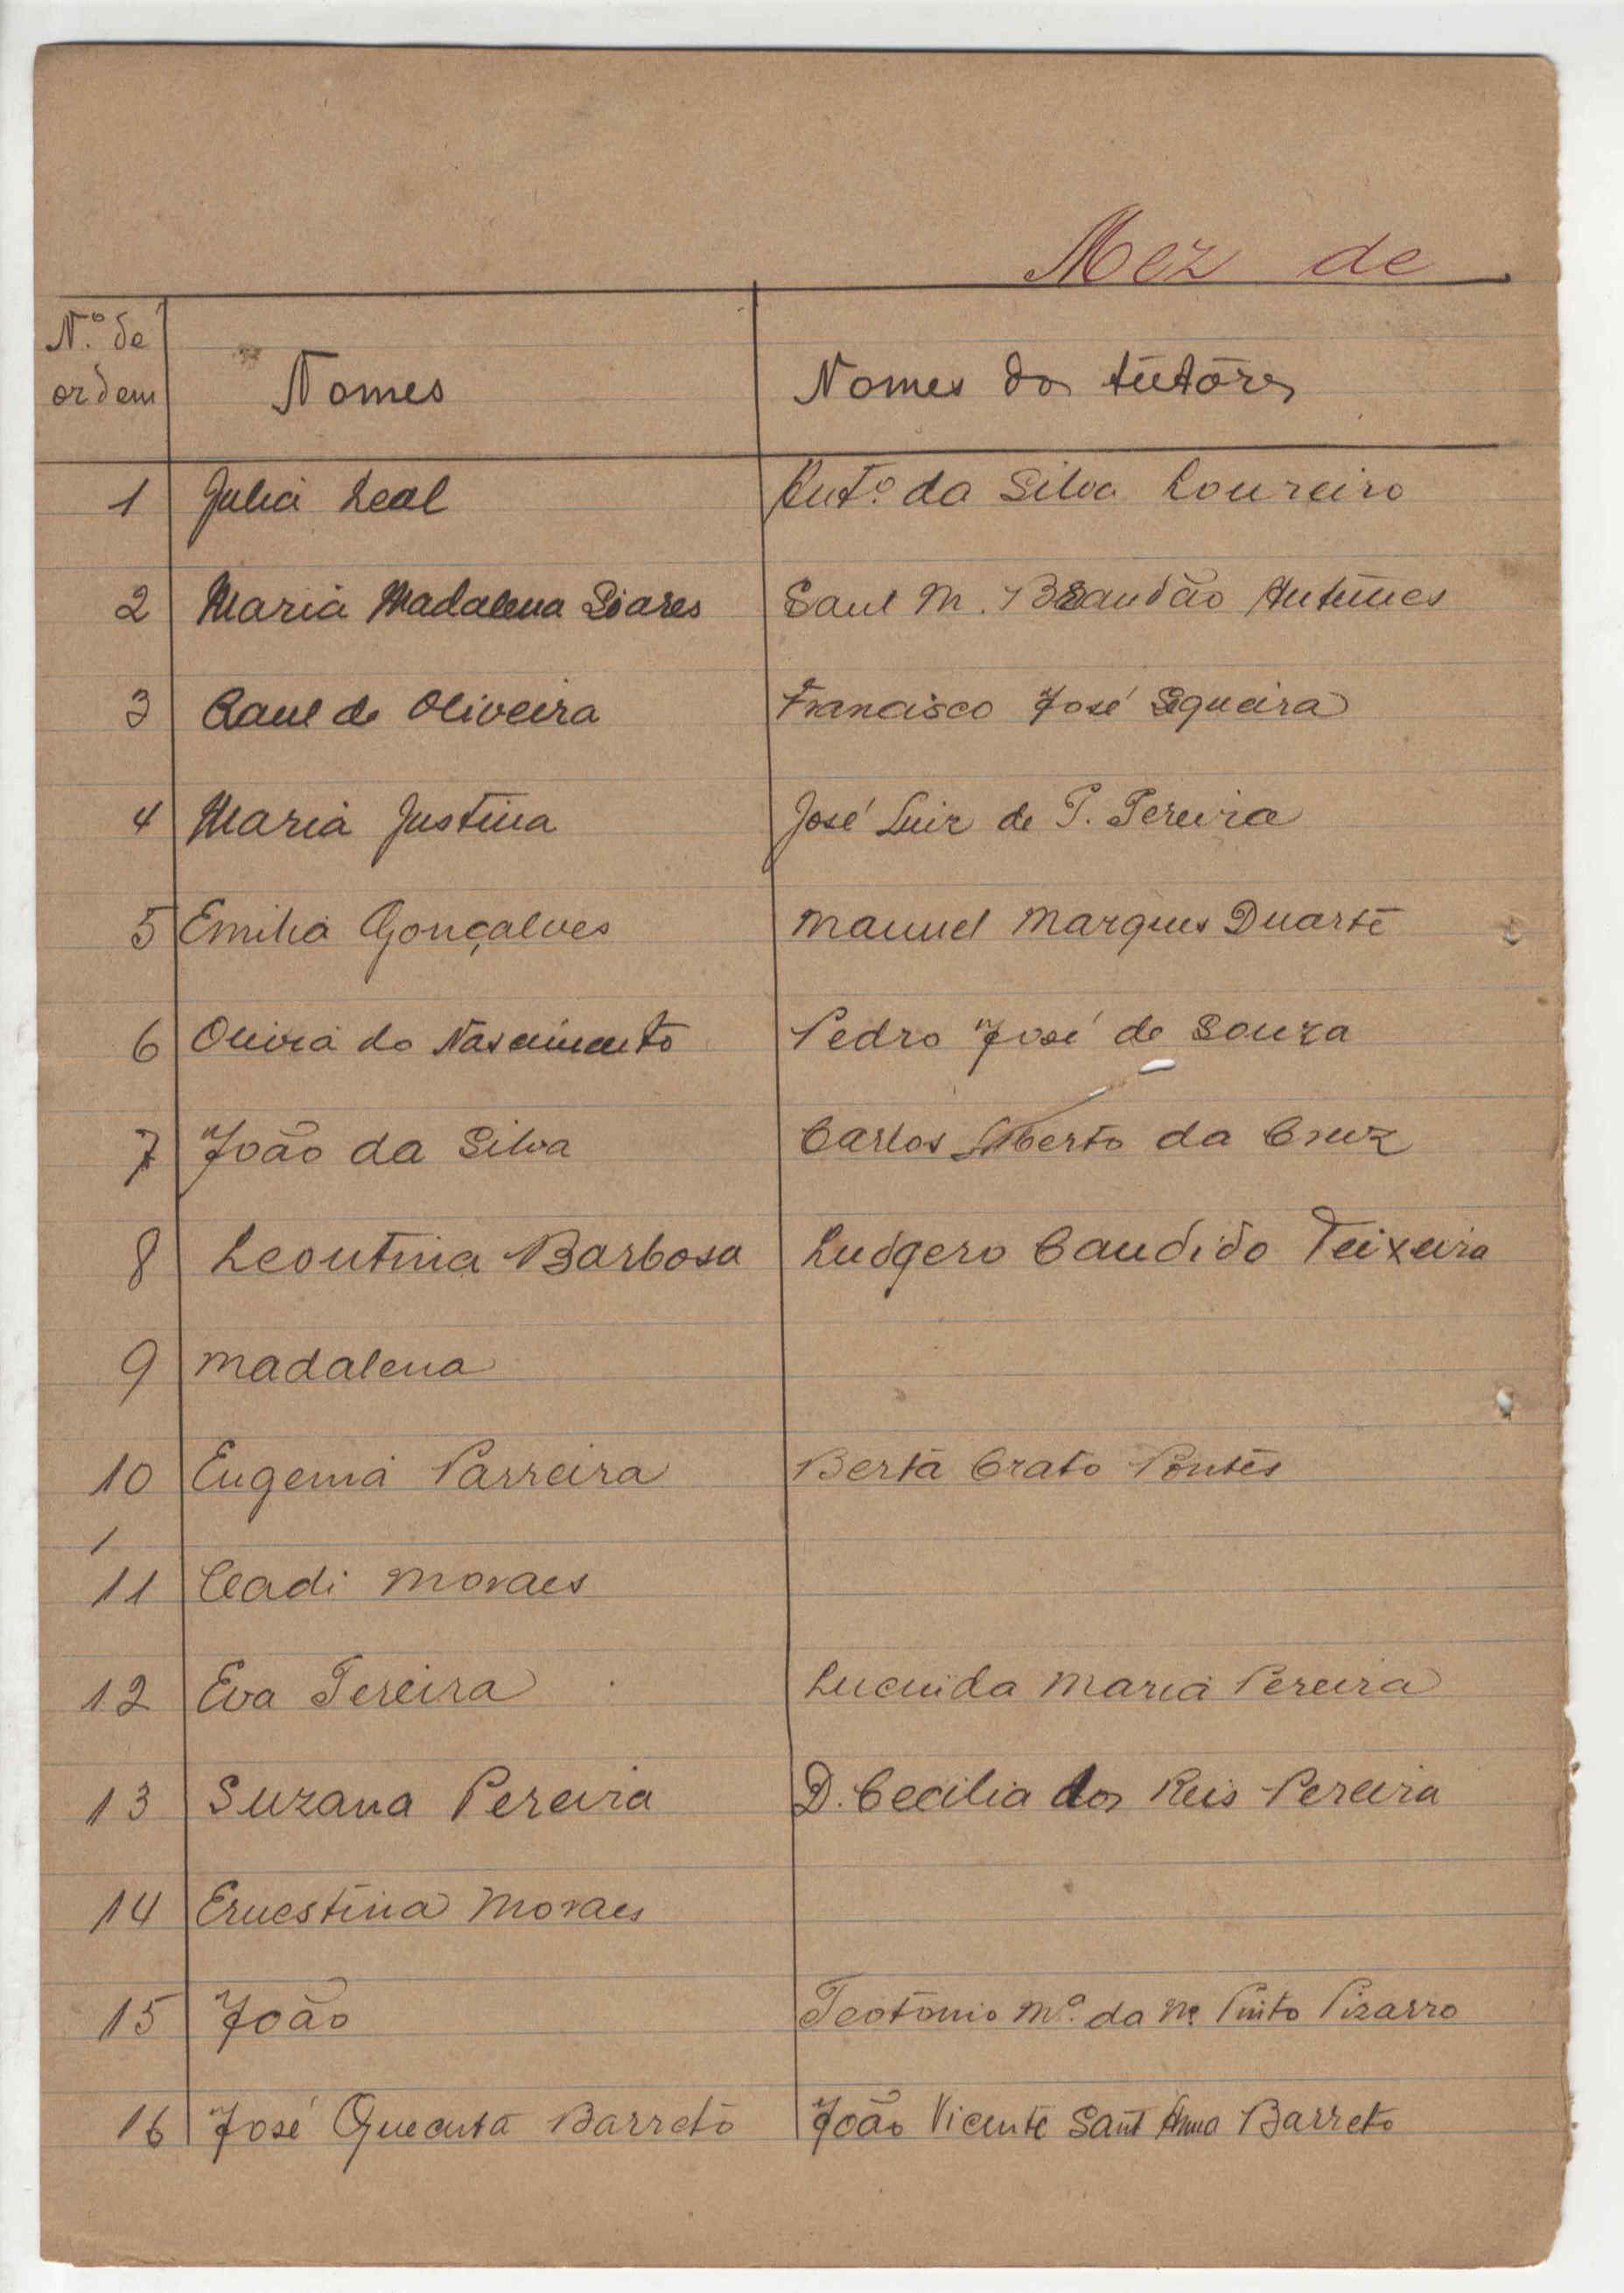 Mez de
N.º de
ordem
Nomes
Nomes dos tutôres
1 Julia Leal Antº da Silva Loureiro
2 Maria Madalena Soares Saul M. Brandão Antunes
3 Raul de Oliveira Francisco José Sequeira
4 Maria Justina José Luiz de P. Pereira
5 Emilia Gonçalves Manuel Marques Duarte
6 Olivia do Nascimento Pedro José de Souza
7 João da Silva Carlos Alberto da Cruz
8 Leontina Barbosa Ludgero Candido Teixeira
9 Madalena
10 Eugenia Parreira Berta Crato Pontes
1
11 Moraes
12 Eva Pereira Lucinda Maria Pereira
13 Suzana Pereira D. Cecilia dos Reis Pereira
14 Ernestina Moraes
15 João Teotonio Mª da Pinto Pizarro
16 José Barreto João Vicente Sant Anna Barreto